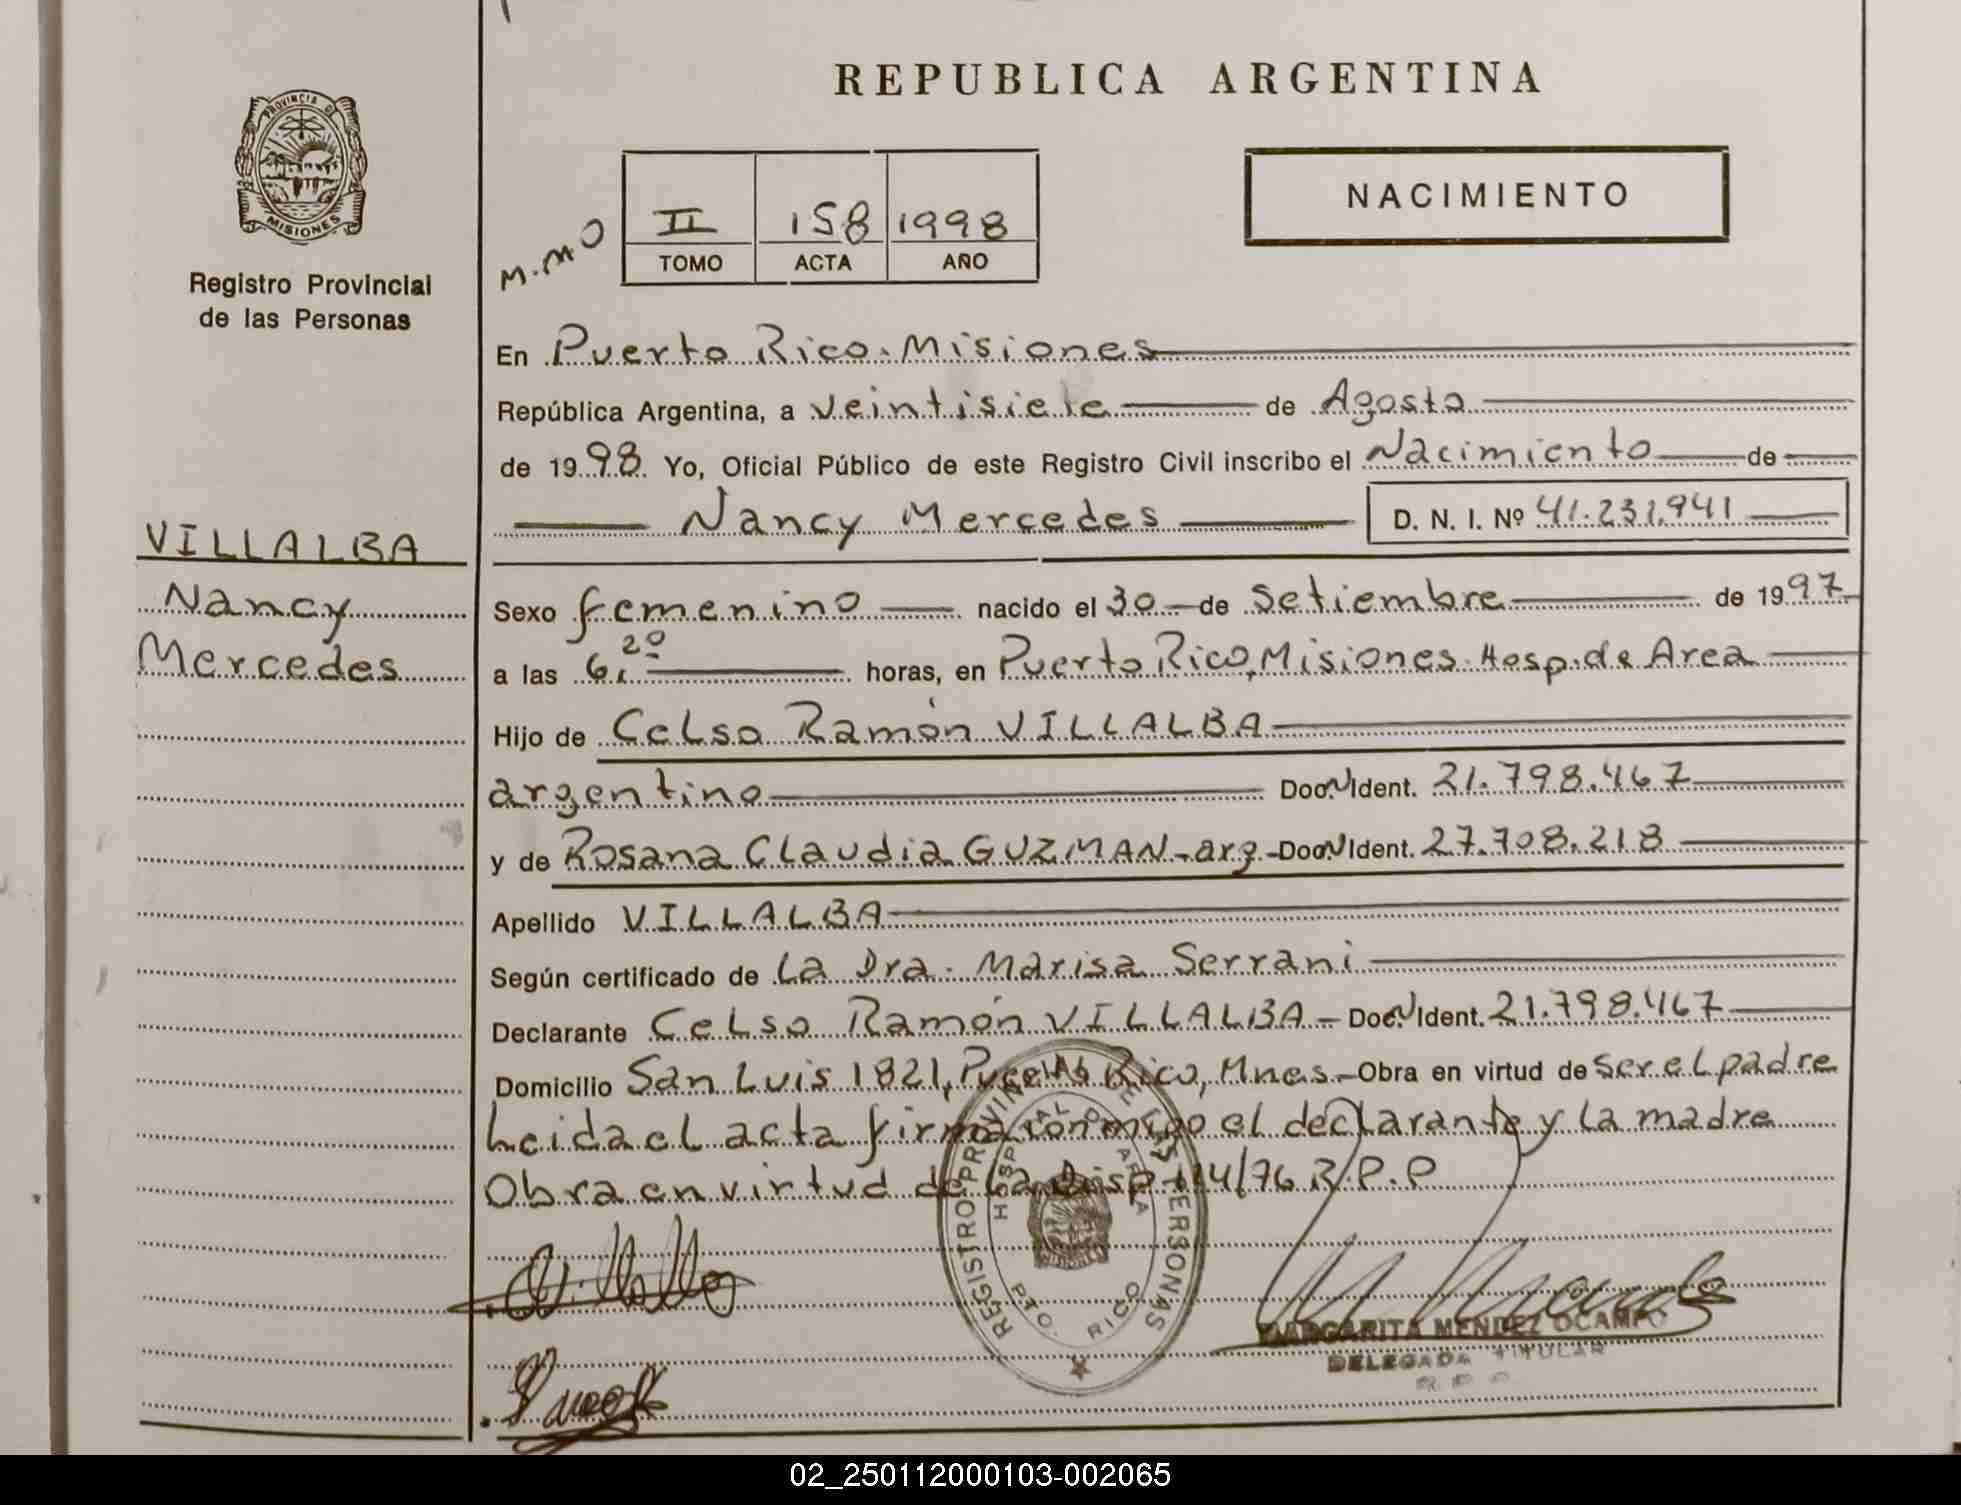 REPUBLICA ARGENTINA
PROVINCIA DE
MISIONES
Registro Provincial
de las Personas
NACIMIENTO
M.M.O
II 158 1998
TOMO ACTA AÑO
En Puerto Rico. Misiones
República Argentina, a veintisiete de Agosto
de 1998 Yo, Oficial Público de este Registro Civil inscribo el Nacimiento de
Nancy Mercedes D. N. I. Nº 41.231.941
VILLALBA
Nancy
Mercedes
Sexo femenino nacido el 30 de Setiembre de 1997
a las 6.20 horas, en Puerto Rico, Misiones. Hosp. de Area
Hijo de Celso Ramón VILLALBA
argentino Doc. N Ident. 21.798.467
y de Rosana Claudia GUZMAN - arg - Doc. N Ident. 27.708.218
Apellido VILLALBA
Según certificado de La Dra. Marisa Serrani
Declarante Celso Ramón VILLALBA - Doc. N Ident. 21.798.467
Domicilio San Luis 1821, Puerto Rico, Mnes. - Obra en virtud de ser el padre
Leida el acta firma conmigo el declarante y la madre
Obra en virtud de la Disp. 114/76 R.P.P
REGISTRO PROVINCIAL DE LAS PERSONAS
HOSPITAL DE AREA
PTO. RICO
MARGARITA MENDEZ OCAMPO
DELEGADA TITULAR
02_250112000103-002065